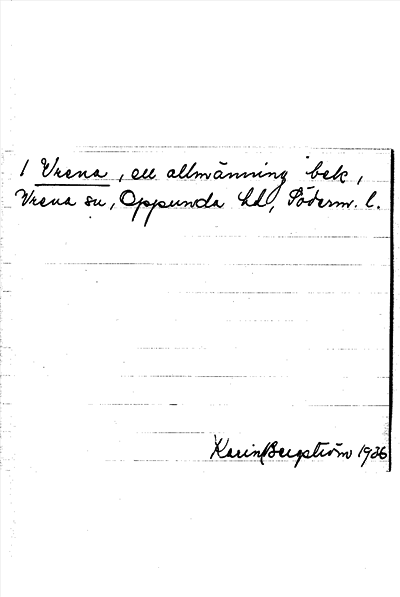 1 Vrena, ell allmänning bek,
Vrena sn, Oppunda hd, Söderm. l.
Karin Bergström 1936